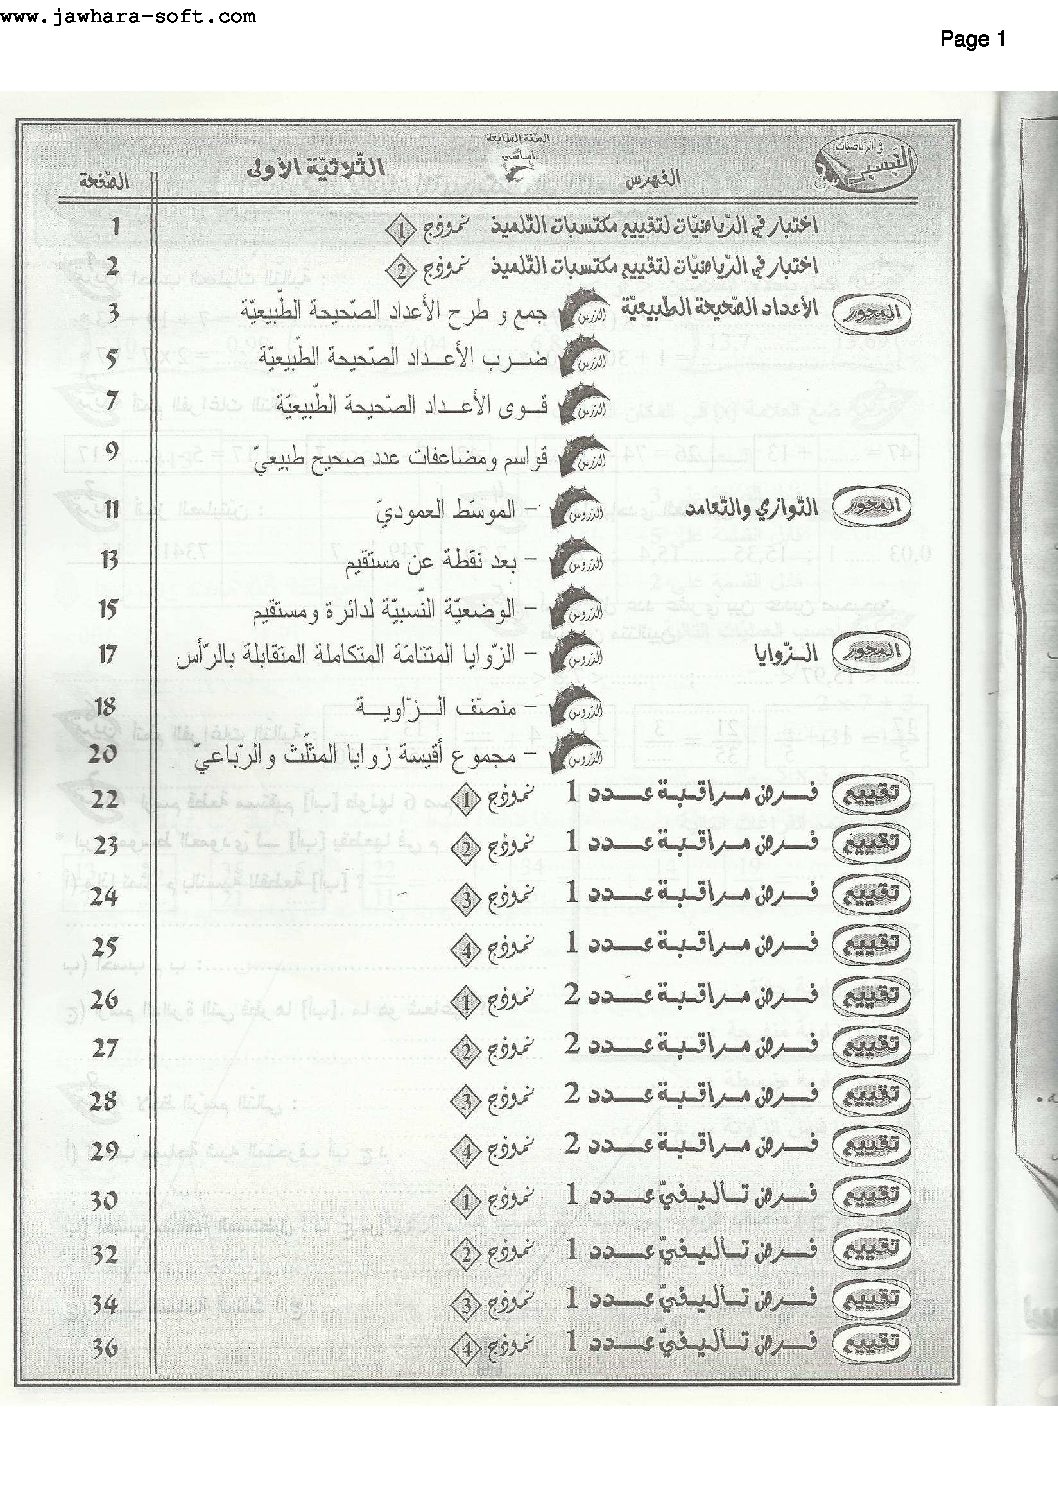 www.jawhara-soft.com
Page 1
السنة السابعة
أساسي
في الرياضيات
الثّلاثيّة الأولى
الفهرس
الصّفحة
اختبار في الرّياضيّات لتقييم مكتسبات التّلميذ نموذج 1 1
اختبار في الرّياضيّات لتقييم مكتسبات التّلميذ نموذج 2 2
المحور الأعداد الصّحيحة الطّبيعيّة الدّرس جمع و طرح الأعداد الصّحيحة الطّبيعيّة 3
الدّرس ضـرب الأعـداد الصّحيحة الطّبيعيّة 5
الدّرس قـوى الأعـداد الصّحيحة الطّبيعيّة 7
الدّرس قواسم ومضاعفات عدد صحيح طبيعيّ 9
المحور التّوازي والتّعامد الدّروس - الموسّط العموديّ 11
الدّروس - بعد نقطة عن مستقيم 13
الدّروس - الوضعيّة النّسبيّة لدائرة ومستقيم 15
المحور الـزّوايا الدّروس - الزّوايا المتتامّة المتكاملة المتقابلة بالرّأس 17
الدّروس - منصّف الـزّاويـة 18
الدّروس - مجموع أقيسة زوايا المثلّث والرّباعيّ 20
تقييم فـرض مـراقـبـة عـدد 1 نموذج 1 22
تقييم فـرض مـراقـبـة عـدد 1 نموذج 2 23
تقييم فـرض مـراقـبـة عـدد 1 نموذج 3 24
تقييم فـرض مـراقـبـة عـدد 1 نموذج 4 25
تقييم فـرض مـراقـبـة عـدد 2 نموذج 1 26
تقييم فـرض مـراقـبـة عـدد 2 نموذج 2 27
تقييم فـرض مـراقـبـة عـدد 2 نموذج 3 28
تقييم فـرض مـراقـبـة عـدد 2 نموذج 4 29
تقييم فـرض تـأليـفـيّ عـدد 1 نموذج 1 30
تقييم فـرض تـأليـفـيّ عـدد 1 نموذج 2 32
تقييم فـرض تـأليـفـيّ عـدد 1 نموذج 3 34
تقييم فـرض تـأليـفـيّ عـدد 1 نموذج 4 36